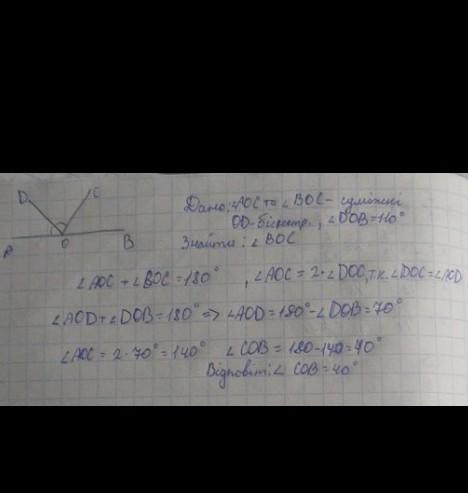 D C
A O B
Дано: ∠AOC та ∠BOC - суміжні
OD - бісектр., ∠DOB = 110°
Знайти: ∠BOC
∠AOC + ∠BOC = 180° , ∠AOC = 2·∠DOC, т.к. ∠DOC = ∠AOD
∠AOD + ∠DOB = 180° => ∠AOD = 180° - ∠DOB = 70°
∠AOC = 2·70° = 140° ∠COB = 180 - 140 = 40°
Відповіт: ∠COB = 40°